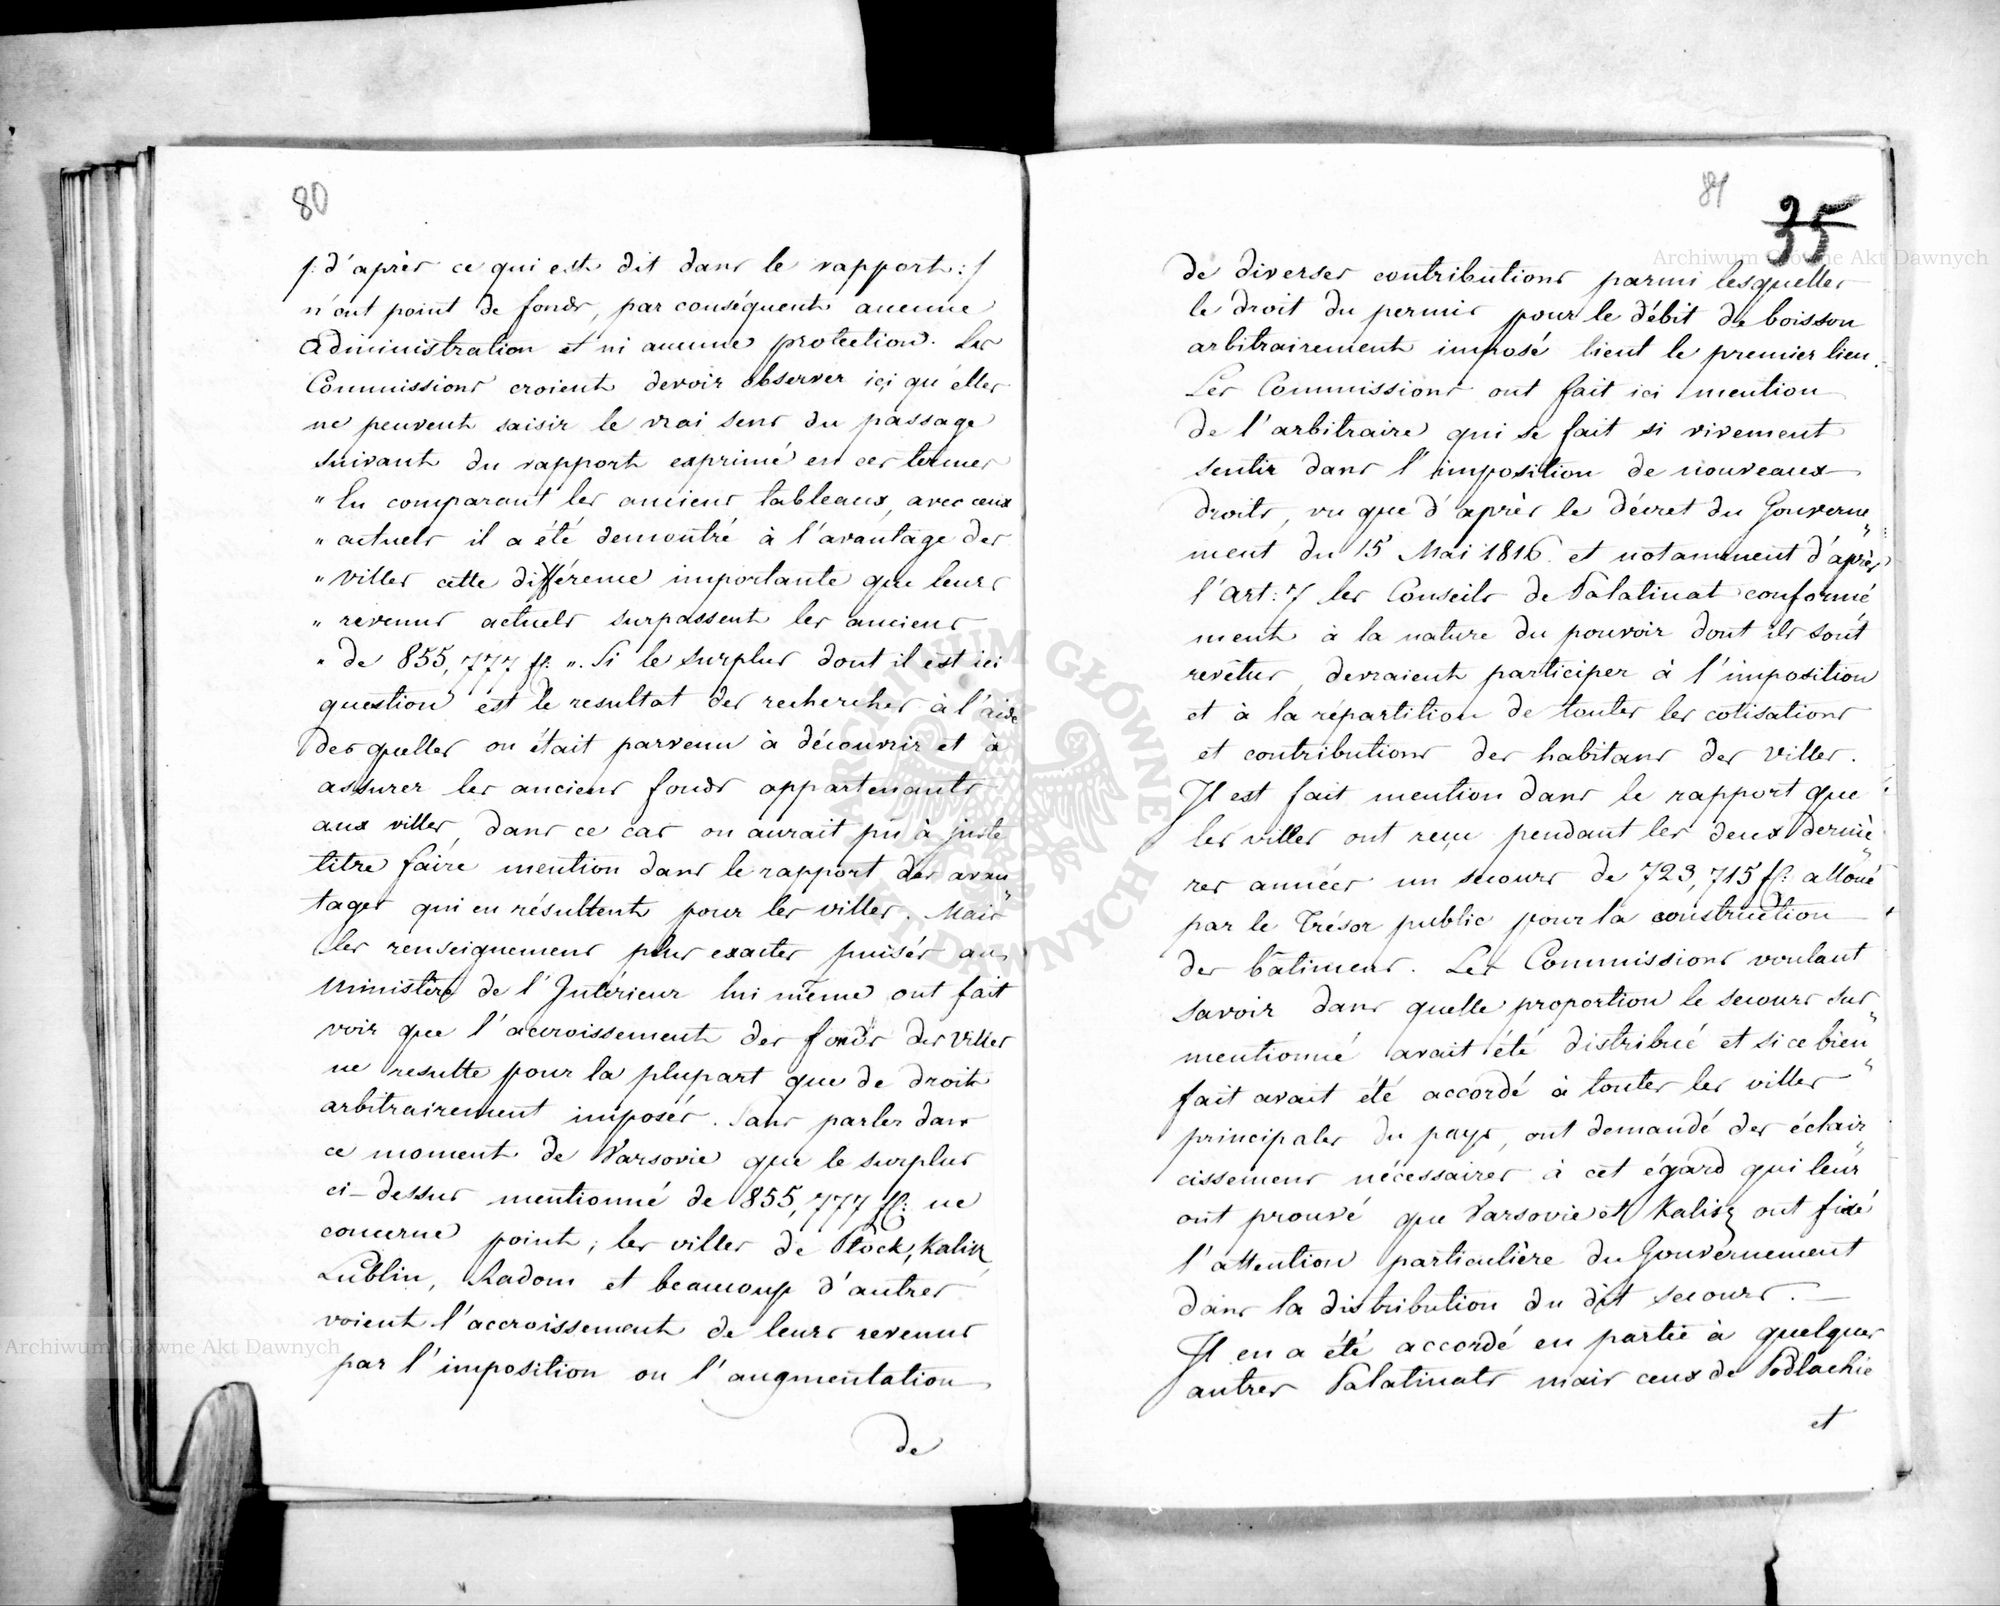 80
/: d'après ce qui est dit dans le rapport :/
n'ont point de fonds, par conséquent aucune
administration et ni aucune protection. Les
Commissions croient devoir observer içi qu'elles
ne peuvent saisir le vrai sens du passage
suivant du rapport exprimé en ces termes
" En comparant les anciens tableaux, avec ceux
" actuels il a été demontré à l'avantage des
" villes cette différence importante que leurs
" revenus actuels surpassent les anciens
" de 855,777 fl: ". Si le surplus dont il est ici
question est le resultat des recherches à l'aide
des quelles on était parvenu à découvrir et à
assurer les anciens fonds appartenants
aux villes, dans ce cas on aurait pu à juste
titre faire mention dans le rapport des avan"
tages qui en résultent pour les villes. Mais
les renseignemens plus exactes puisés au
Ministère de l'Intérieur lui même ont fait
voir que l'accroissement des fonds des villes
ne resulte pour la plupart que de droits
arbitrairement imposés. Sans parler dans
ce moment de Varsovie que le surplus
ci-dessus mentionné de 855,777 fl: ne
concerne point; les villes de Płock, Kalisz
Lublin, Radom et beaucoup d'autres
voient l'accroissement de leurs revenus
par l'imposition ou l'augmentation
de
81
35
de diverses contributions parmi lesquelles
le droit du permis pour le débit de boisson
arbitrairement imposé tient le premier lieu.
Les Commissions ont fait ici mention
de l'arbitraire qui se fait si vivement
sentir dans l'imposition de nouveaux
droits, vu que d'après le décret du Gouverne"
ment du 15 Mai 1816. et notamment d'après
l'art: 7 les Conseils de Palatinat conformé
ment à la nature du pouvoir dont ils sont
revêtus, devraient participer à l'imposition
et à la répartition de toutes les cotisations
et contributions des habitans des villes.
Il est fait mention dans le rapport que
les villes ont reçu pendant les deux derniè"
res années un secours de 723,715 fl: alloué
par le Trésor public pour la construction
des bâtimens. Les Commissions voulant
savoir dans quelle proportion le secours sus"
mentionné avait été distribué et si ce bien"
fait avait été accordé à toutes les villes
principales du pays, ont demandé des éclair"
cissemens nécessaires à cet égard qui leur
ont prouvé que Varsovie et Kalisz ont fixé
l'attention particulière du Gouvernement
dans la distribution du dit secours. —
Il en a été accordé en partie à quelques
autres Palatinats mais ceux de Podlachie
et
Archiwum Główne Akt Dawnych
Archiwum Główne Akt Dawnych
ARCHIWUM GŁÓWNE AKT DAWNYCH